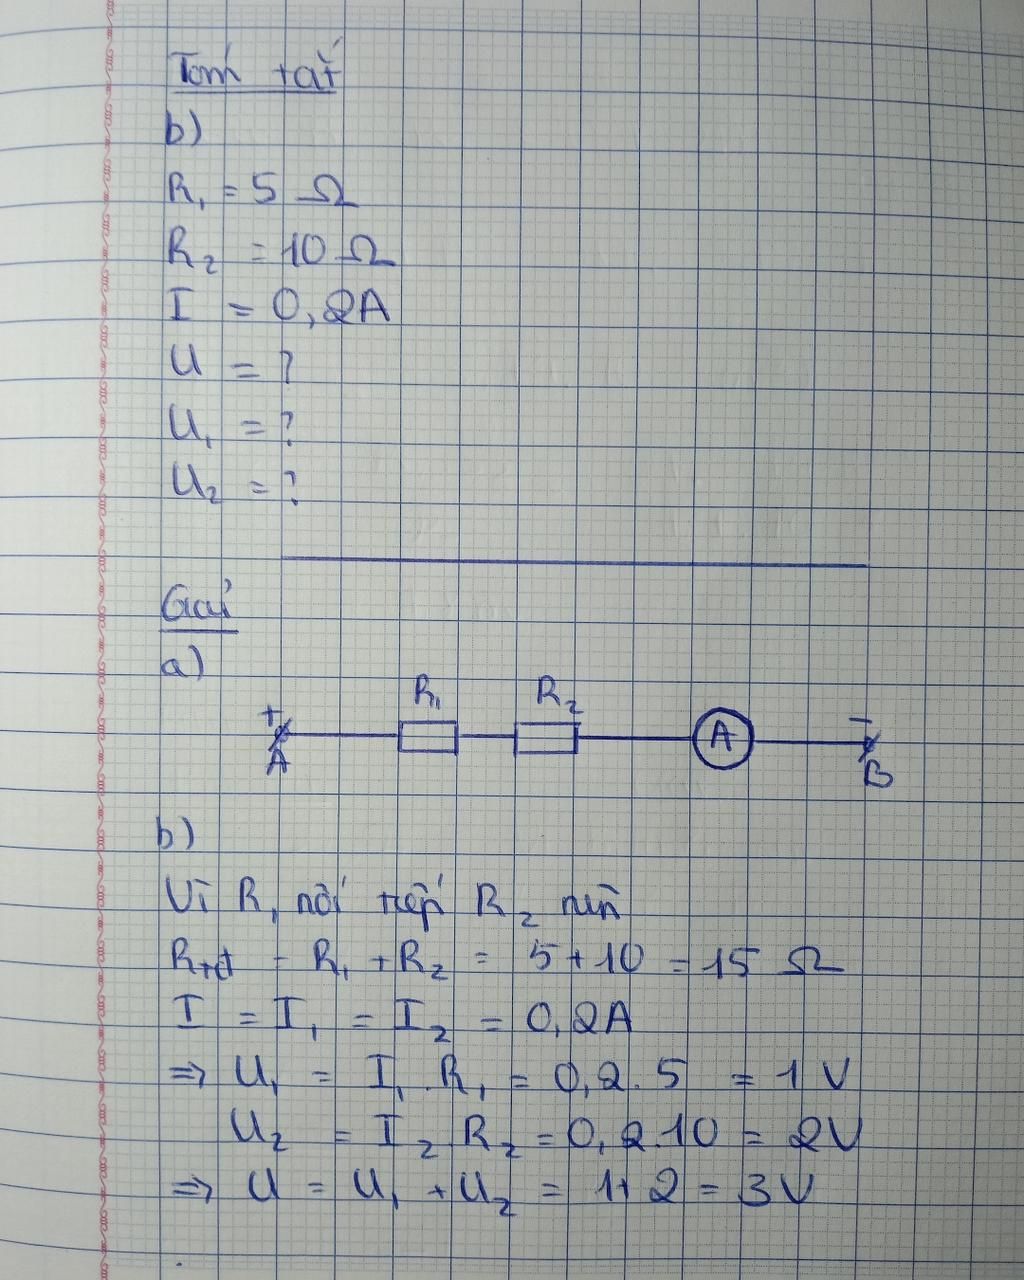 Tóm tắt
b)
R₁ = 5 Ω
R₂ = 10 Ω
I = 0,2A
U = ?
U₁ = ?
U₂ = ?
Giải
a)
R₁ R₂
+ A -
A B
b)
Vì R₁ nối tiếp R₂ nên
Rtđ = R₁ + R₂ = 5 + 10 = 15 Ω
I = I₁ = I₂ = 0,2A
=> U₁ = I₁ . R₁ = 0,2 . 5 = 1 V
U₂ = I₂ R₂ = 0,2.10 = 2V
=> U = U₁ + U₂ = 1 + 2 = 3V